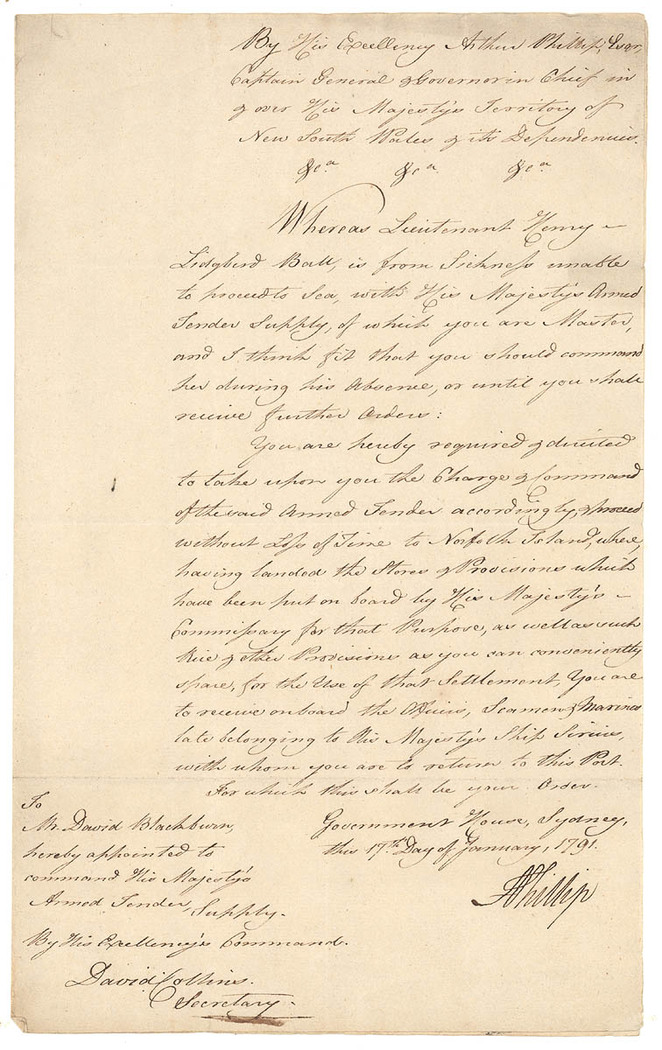 By His Excellency Arthur Phillip, Esqr,
Captain General & Governor in Chief in
& over His Majesty's Territory of
New South Wales & its Dependencies.
&ca &ca &ca
Whereas Lieutenant Henry –
Lidgbird Ball, is from Sickness unable
to proceed to Sea, with His Majesty's Armed
Tender Supply, of which you are Master,
and I think fit that you should command
her during his Absence, or until you shall
receive further Orders:
You are hereby required & directed
to take upon you the Charge & Command
of the said Armed Tender accordingly, & proceed
without Loss of Time to Norfolk Island, where,
having landed the Stores & Provisions which
have been put on board by His Majesty's –
Commissary for that Purpose, as well as such
Rice & other Provisions as you can conveniently
spare, for the Use of that Settlement, You are
to receive on board the Officers, Seamen & Marines
late belonging to His Majesty's Ship Sirius,
with whom you are to return to this Port.
For which this shall be your Order.
Government House, Sydney,
this 17th Day of January, 1791.
APhillip
To
Mr. David Blackburn,
hereby appointed to
command His Majesty's
Armed Tender, Supply.
By His Excellency's Command.
David Collins.
Secretary.